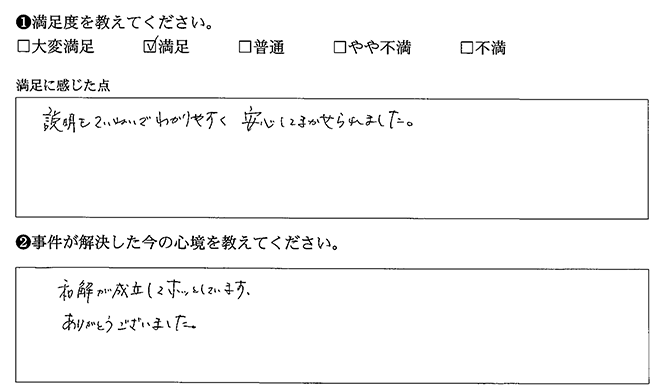 ❶満足度を教えてください。
□大変満足 ☑満足 □普通 □やや不満 □不満
満足に感じた点
説明もていねいでわかりやすく 安心してまかせられました。
❷事件が解決した今の心境を教えてください。
和解が成立してホッとしています、
ありがとうございました。